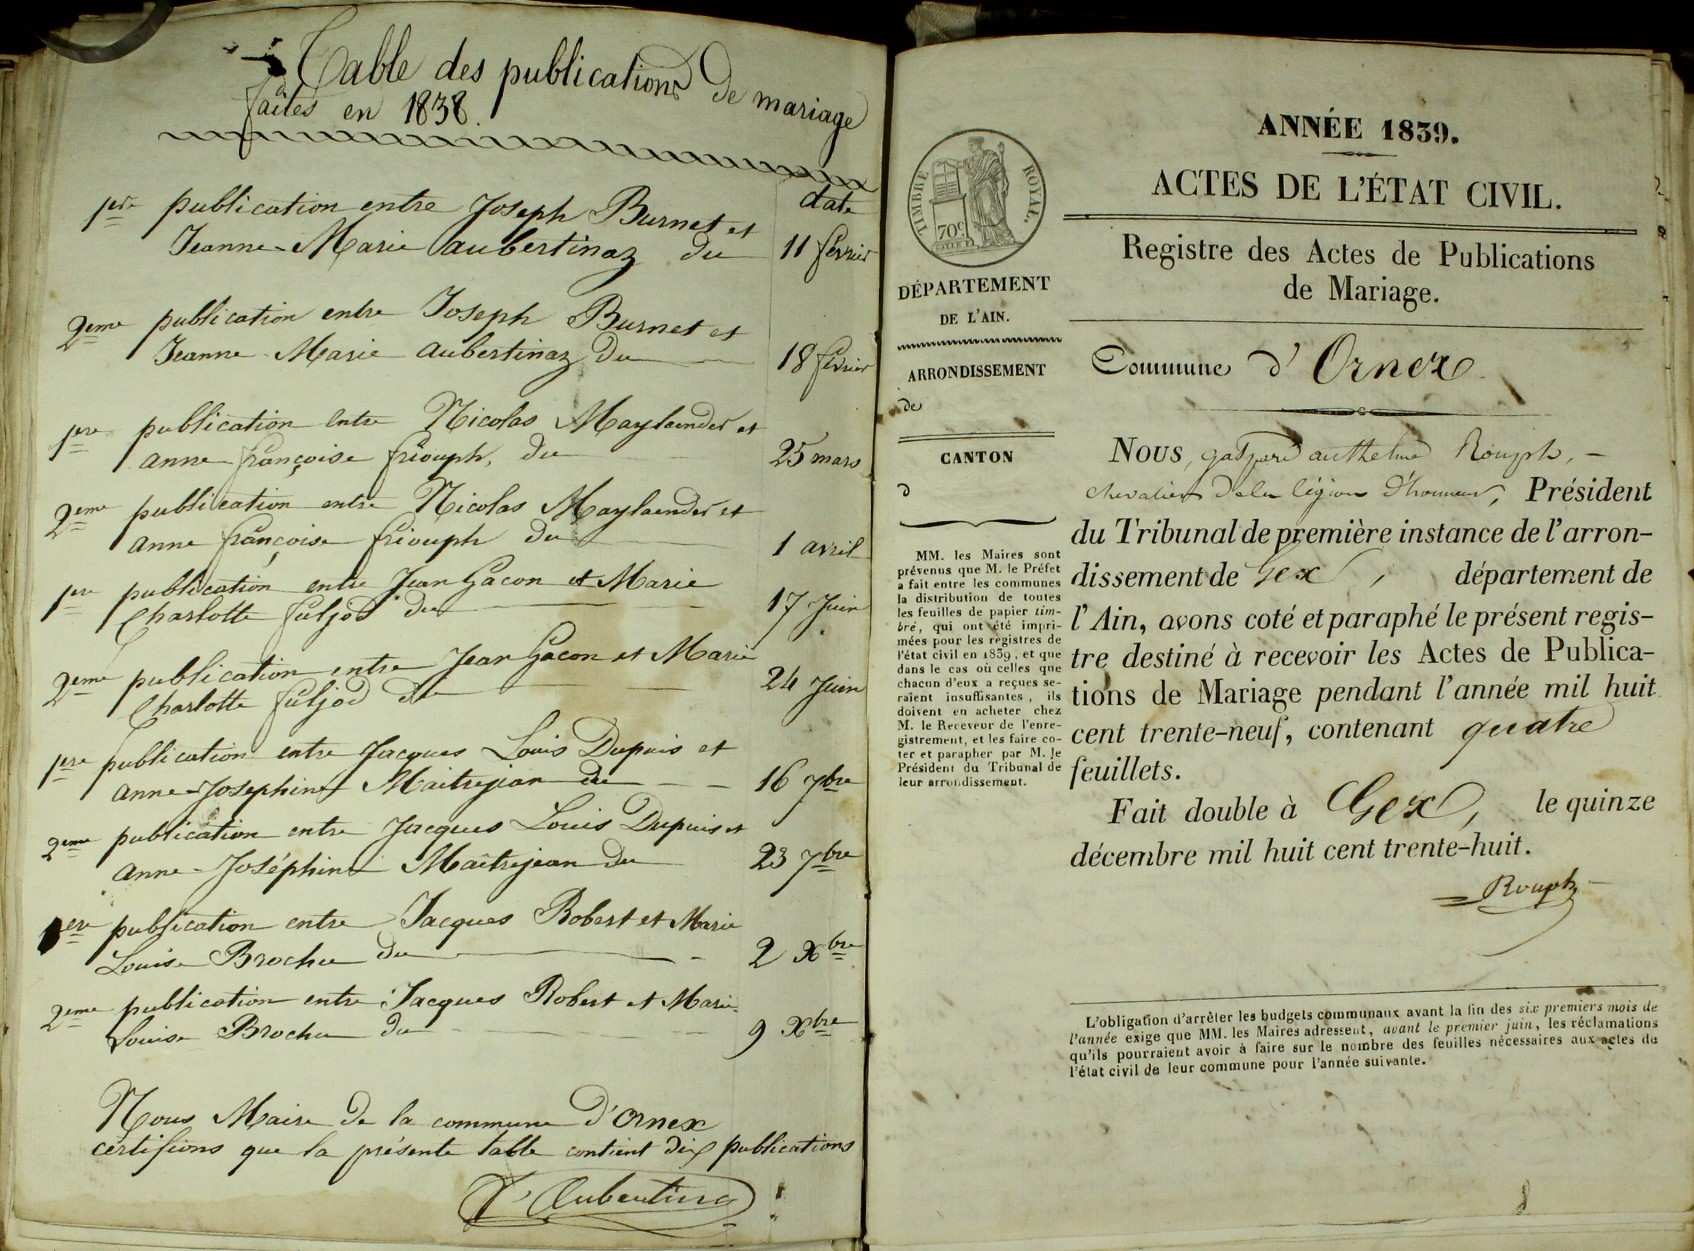 Table des publications de mariage
faites en 1838.
date
1ere publication entre Joseph Burnet et
Jeanne-Marie aubertinaz du 11 février
2eme publication entre Joseph Burnet et
Jeanne Marie aubertinaz du 18 février
1ere publication entre Nicolas Maylaender et
anne françoise friouph, du 25 mars
2eme publication entre Nicolas Maylaender et
anne françoise friouph du 1 avril
1ere publication entre Jean Gacon et Marie
Charlotte fuljod du 17 Juin
2eme publication entre Jean Gacon et Marie
Charlotte fuljod du 24 Juin
1ere publication entre Jacques Louis Dupuis et
anne-Josephine Maitrejean du 16 7bre
2eme publication entre Jacques Louis Dupuis et
anne-Joséphine Maitrejean du 23 7bre
1ere publication entre Jacques Robert et Marie
Louise Brochu du 2 Xbre
2eme publication entre Jacques Robert et Marie-
Louise Brochu du 9 Xbre
Nous Maire de la commune d'Ornex
certifions que la présente table contient dix publications
TIMBRE ROYAL.
70c
DÉPARTEMENT
DE L'AIN.
ARRONDISSEMENT
de
CANTON
d
MM. les Maires sont
prévenus que M. le Préfet
a fait entre les communes
la distribution de toutes
les feuilles de papier tim-
bré, qui ont été impri-
mées pour les registres de
l'état civil en 1839, et que
dans le cas où celles que
chacun d'eux a reçues se-
raient insuffisantes, ils
doivent en acheter chez
M. le Receveur de l'enre-
gistrement, et les faire co-
ter et parapher par M. le
Président du Tribunal de
leur arrondissement.
ANNÉE 1839.
ACTES DE L'ÉTAT CIVIL.
Registre des Actes de Publications
de Mariage.
Commune d'Ornex
Nous, gaspard anthelme Rouph, -
chevalier de la légion d'honneur, Président
du Tribunal de première instance de l'arron-
dissement de Gex, département de
l'Ain, avons coté et paraphé le présent regis-
tre destiné à recevoir les Actes de Publica-
tions de Mariage pendant l'année mil huit
cent trente-neuf, contenant quatre
feuillets.
Fait double à Gex, le quinze
décembre mil huit cent trente-huit.
Rouph
L'obligation d'arrêter les budgets communaux avant la fin des six premiers mois de
l'année exige que MM. les Maires adressent, avant le premier juin, les réclamations
qu'ils pourraient avoir à faire sur le nombre des feuilles nécessaires aux actes de
l'état civil de leur commune pour l'année suivante.